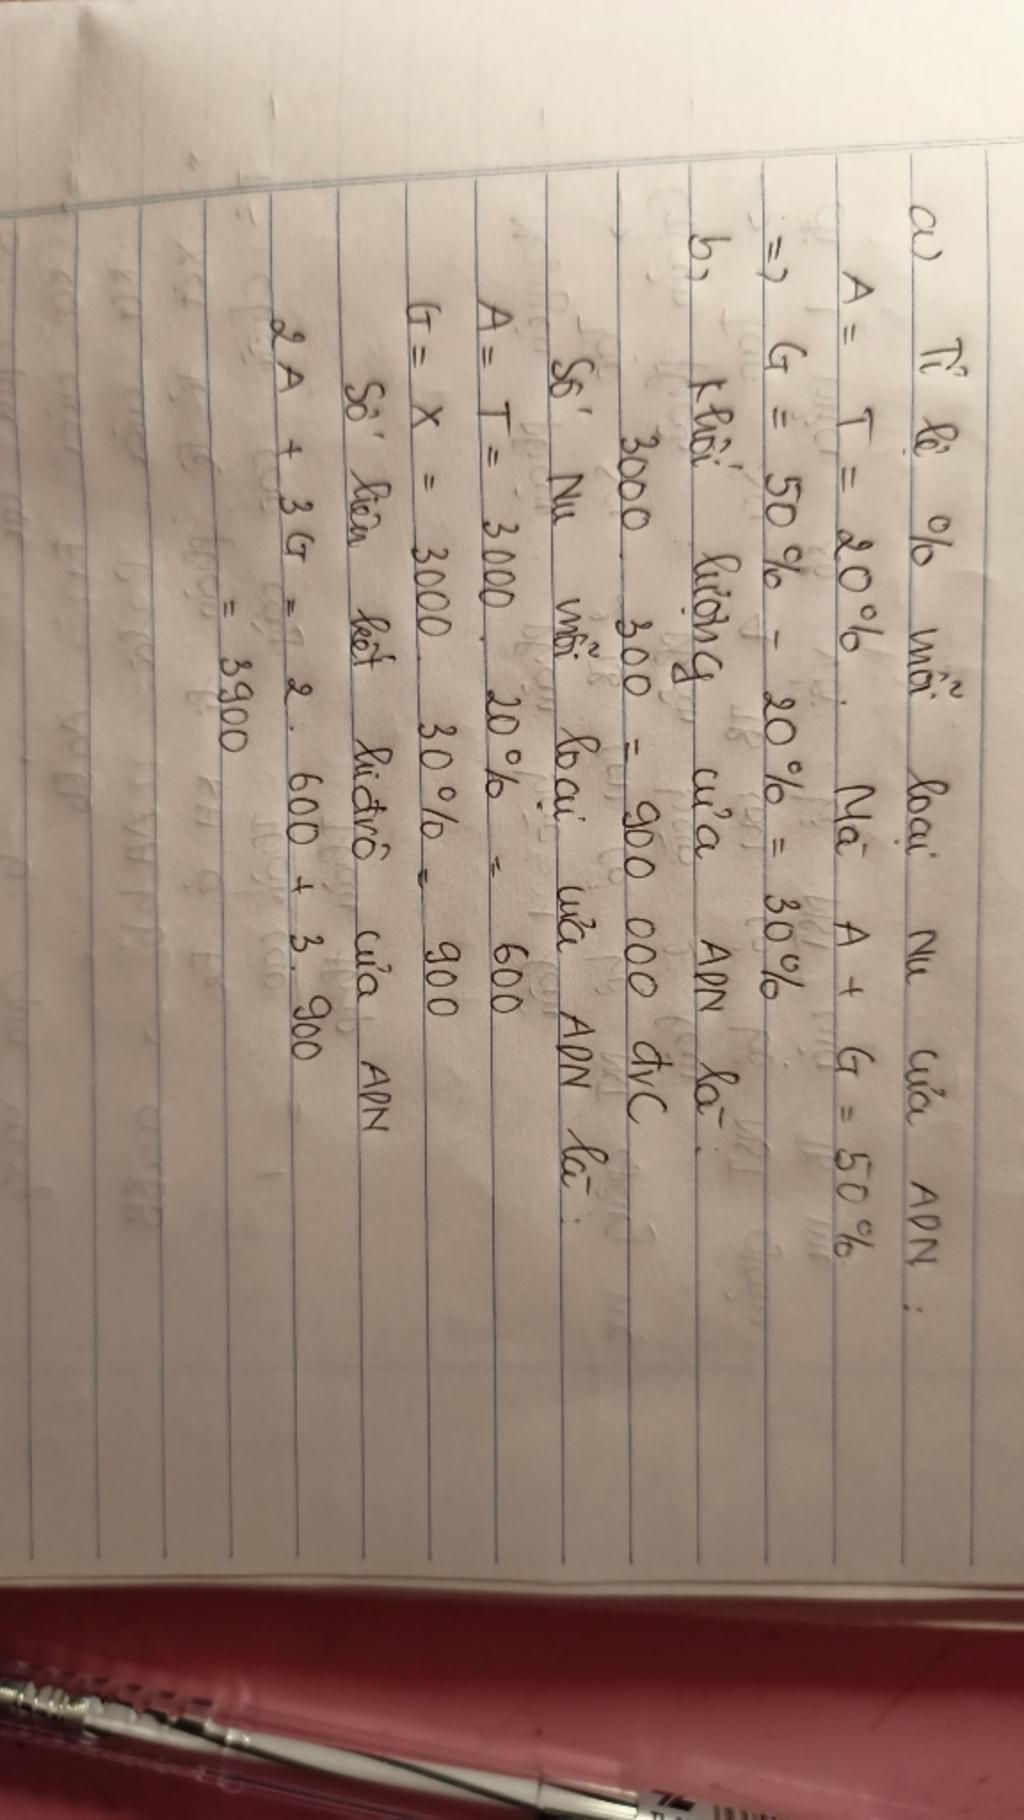 a) Tỉ lệ % mỗi loại Nu của ADN :
A = T = 20% . Mà A + G = 50%
=) G = 50% - 20% = 30%
b) Khối lượng của ADN là :
3000 . 300 = 900 000 đvC
Số Nu mỗi loại của ADN là :
A = T = 3000 . 20% = 600
G = X = 3000 . 30% = 900
Số liên kết hiđrô của ADN
2A + 3G = 2 . 600 + 3 . 900
= 3900